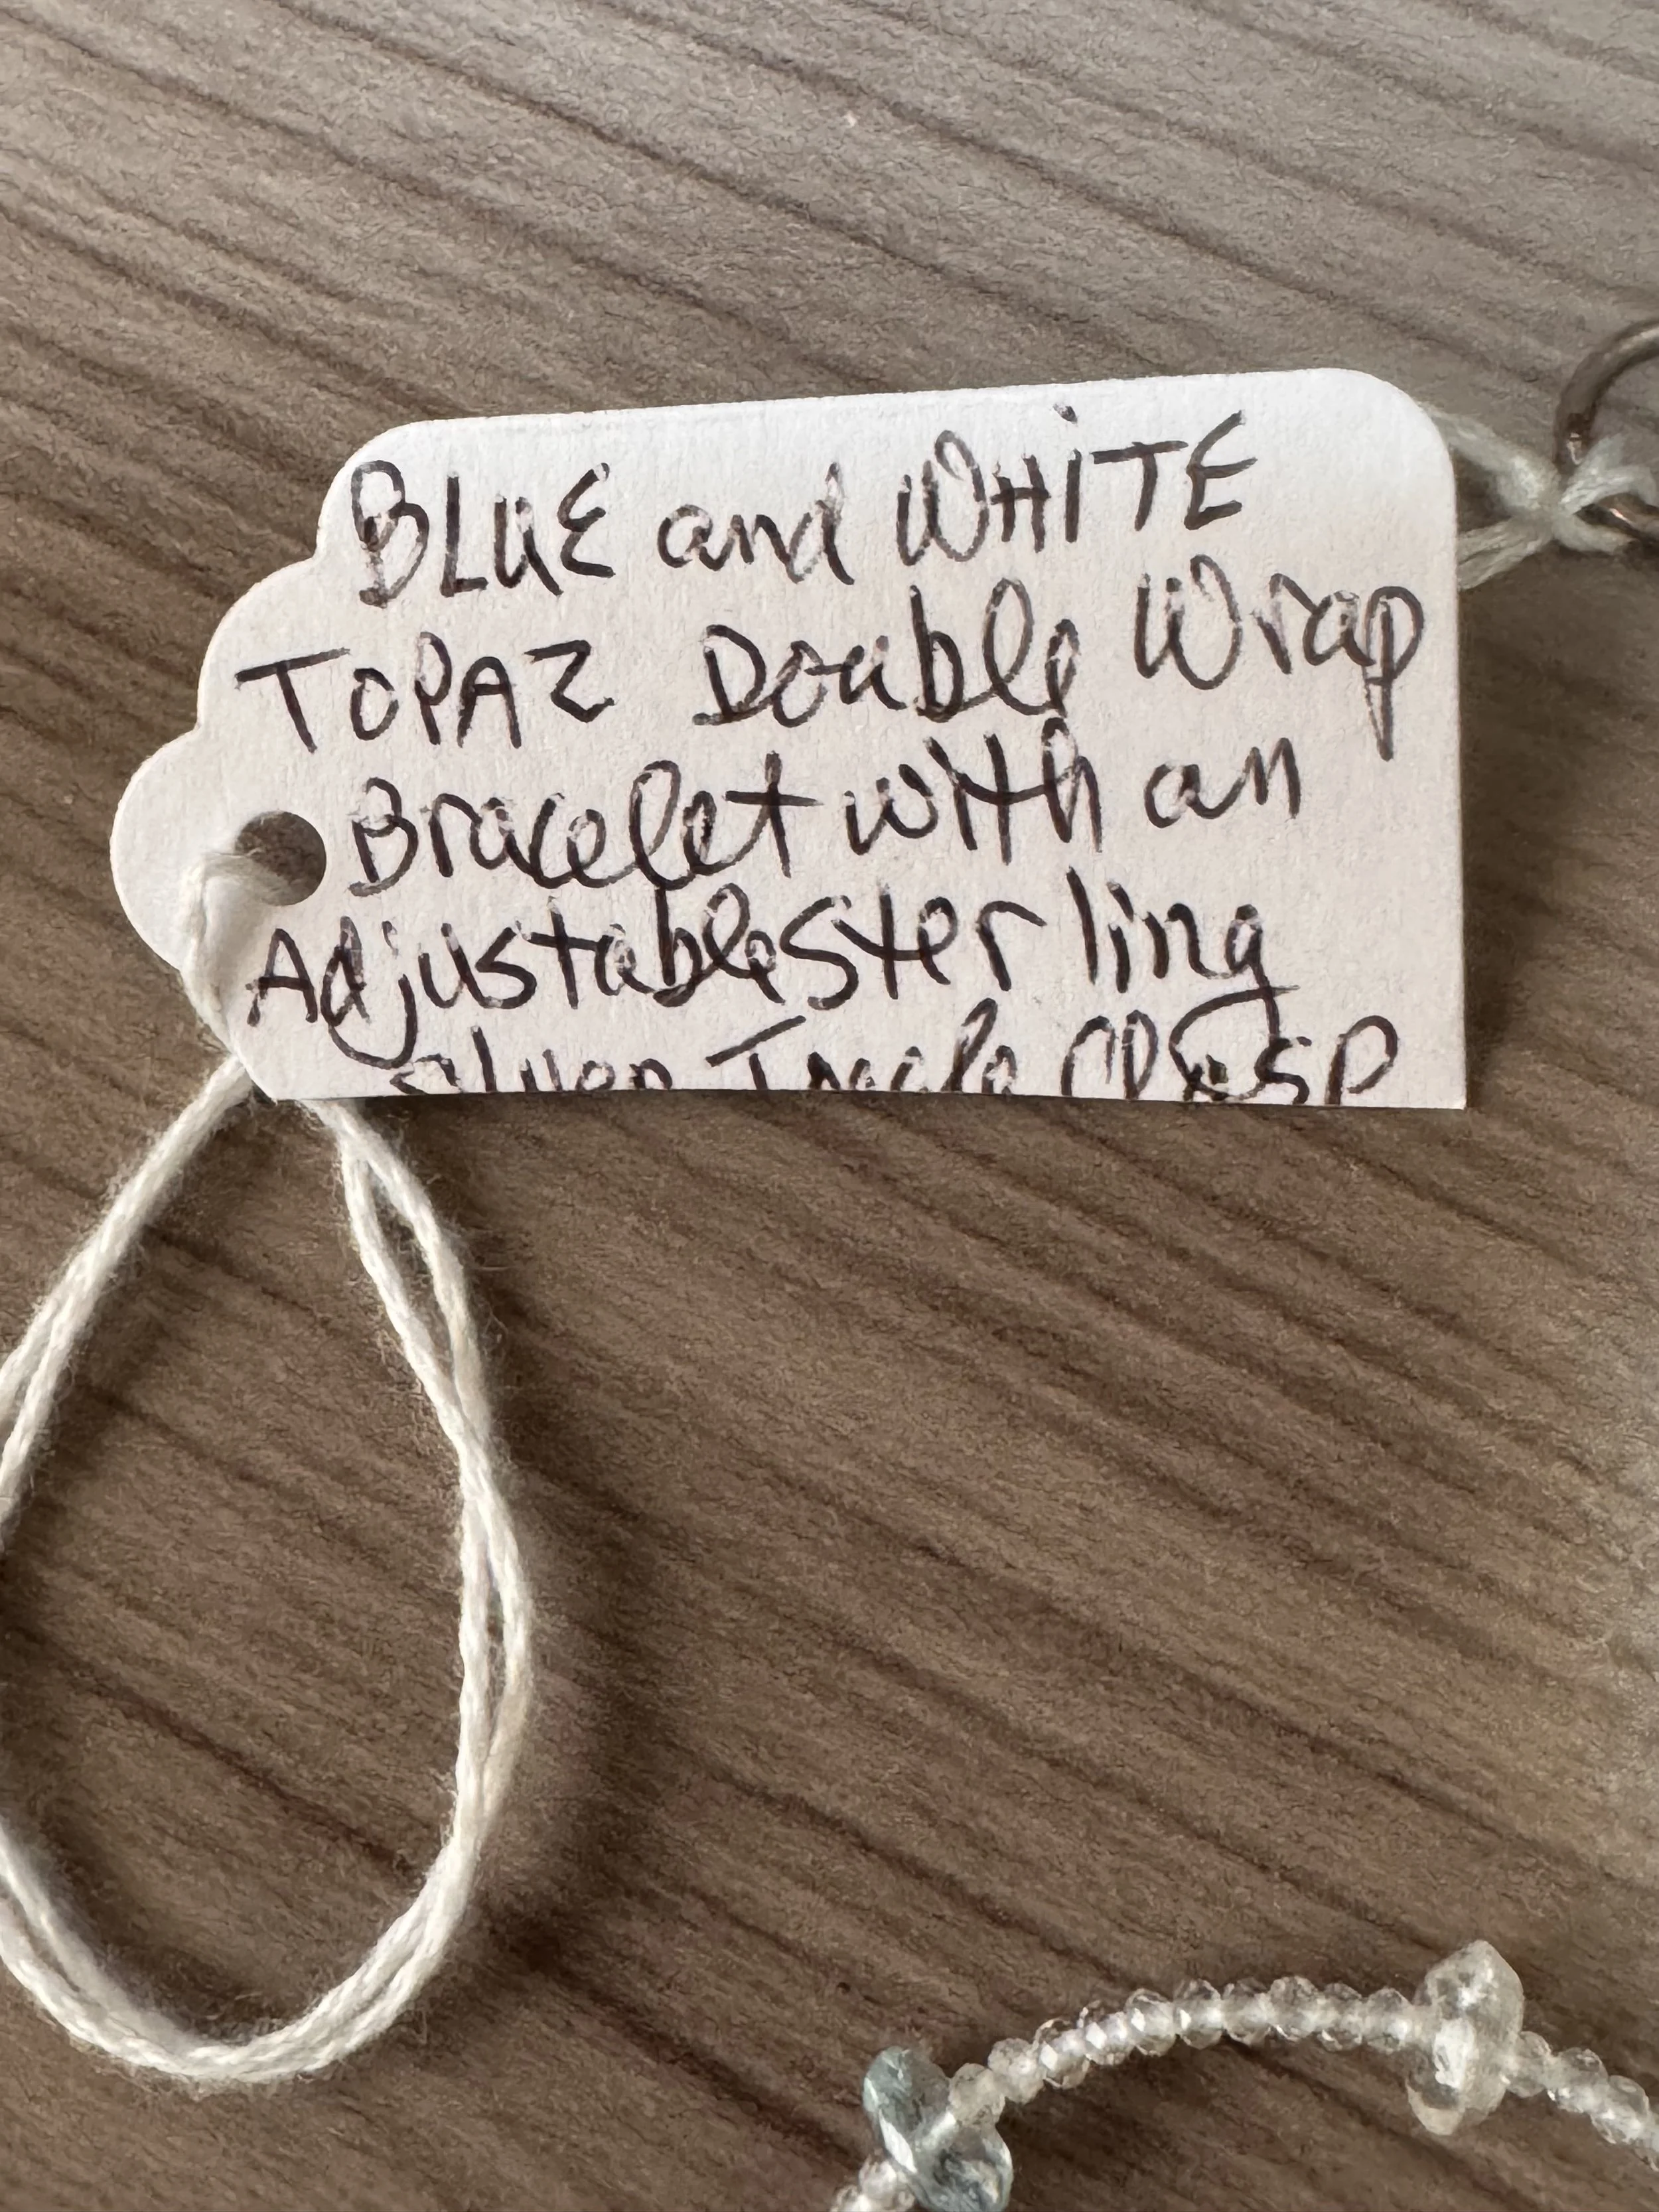 BLUE and WHITE
TOPAZ Double Wrap
Bracelet with an
Adjustable Sterling
Silver Toggle Clasp